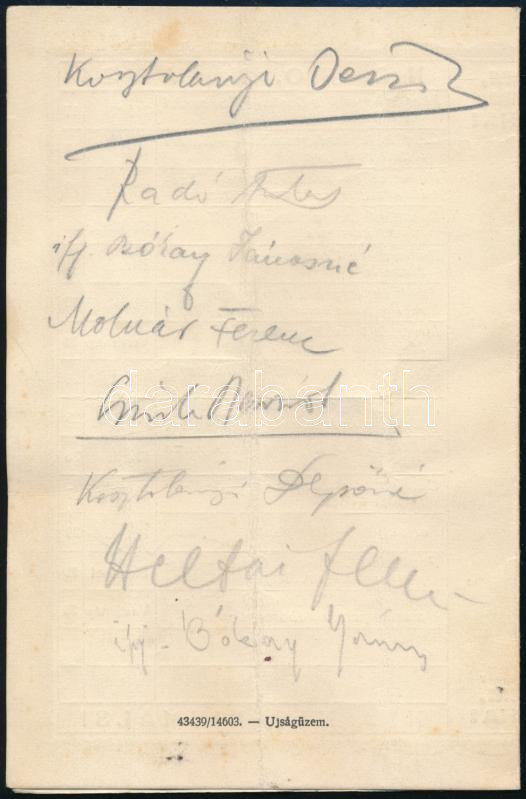 Kosztolányi Dezső
Radó Antal
ifj. Bókay Jánosné
Molnár Ferenc
darabanth
Kosztolányi Dezsőné
Heltai Jenő
ifj. Bókay János
43439/14603. — Ujságüzem.